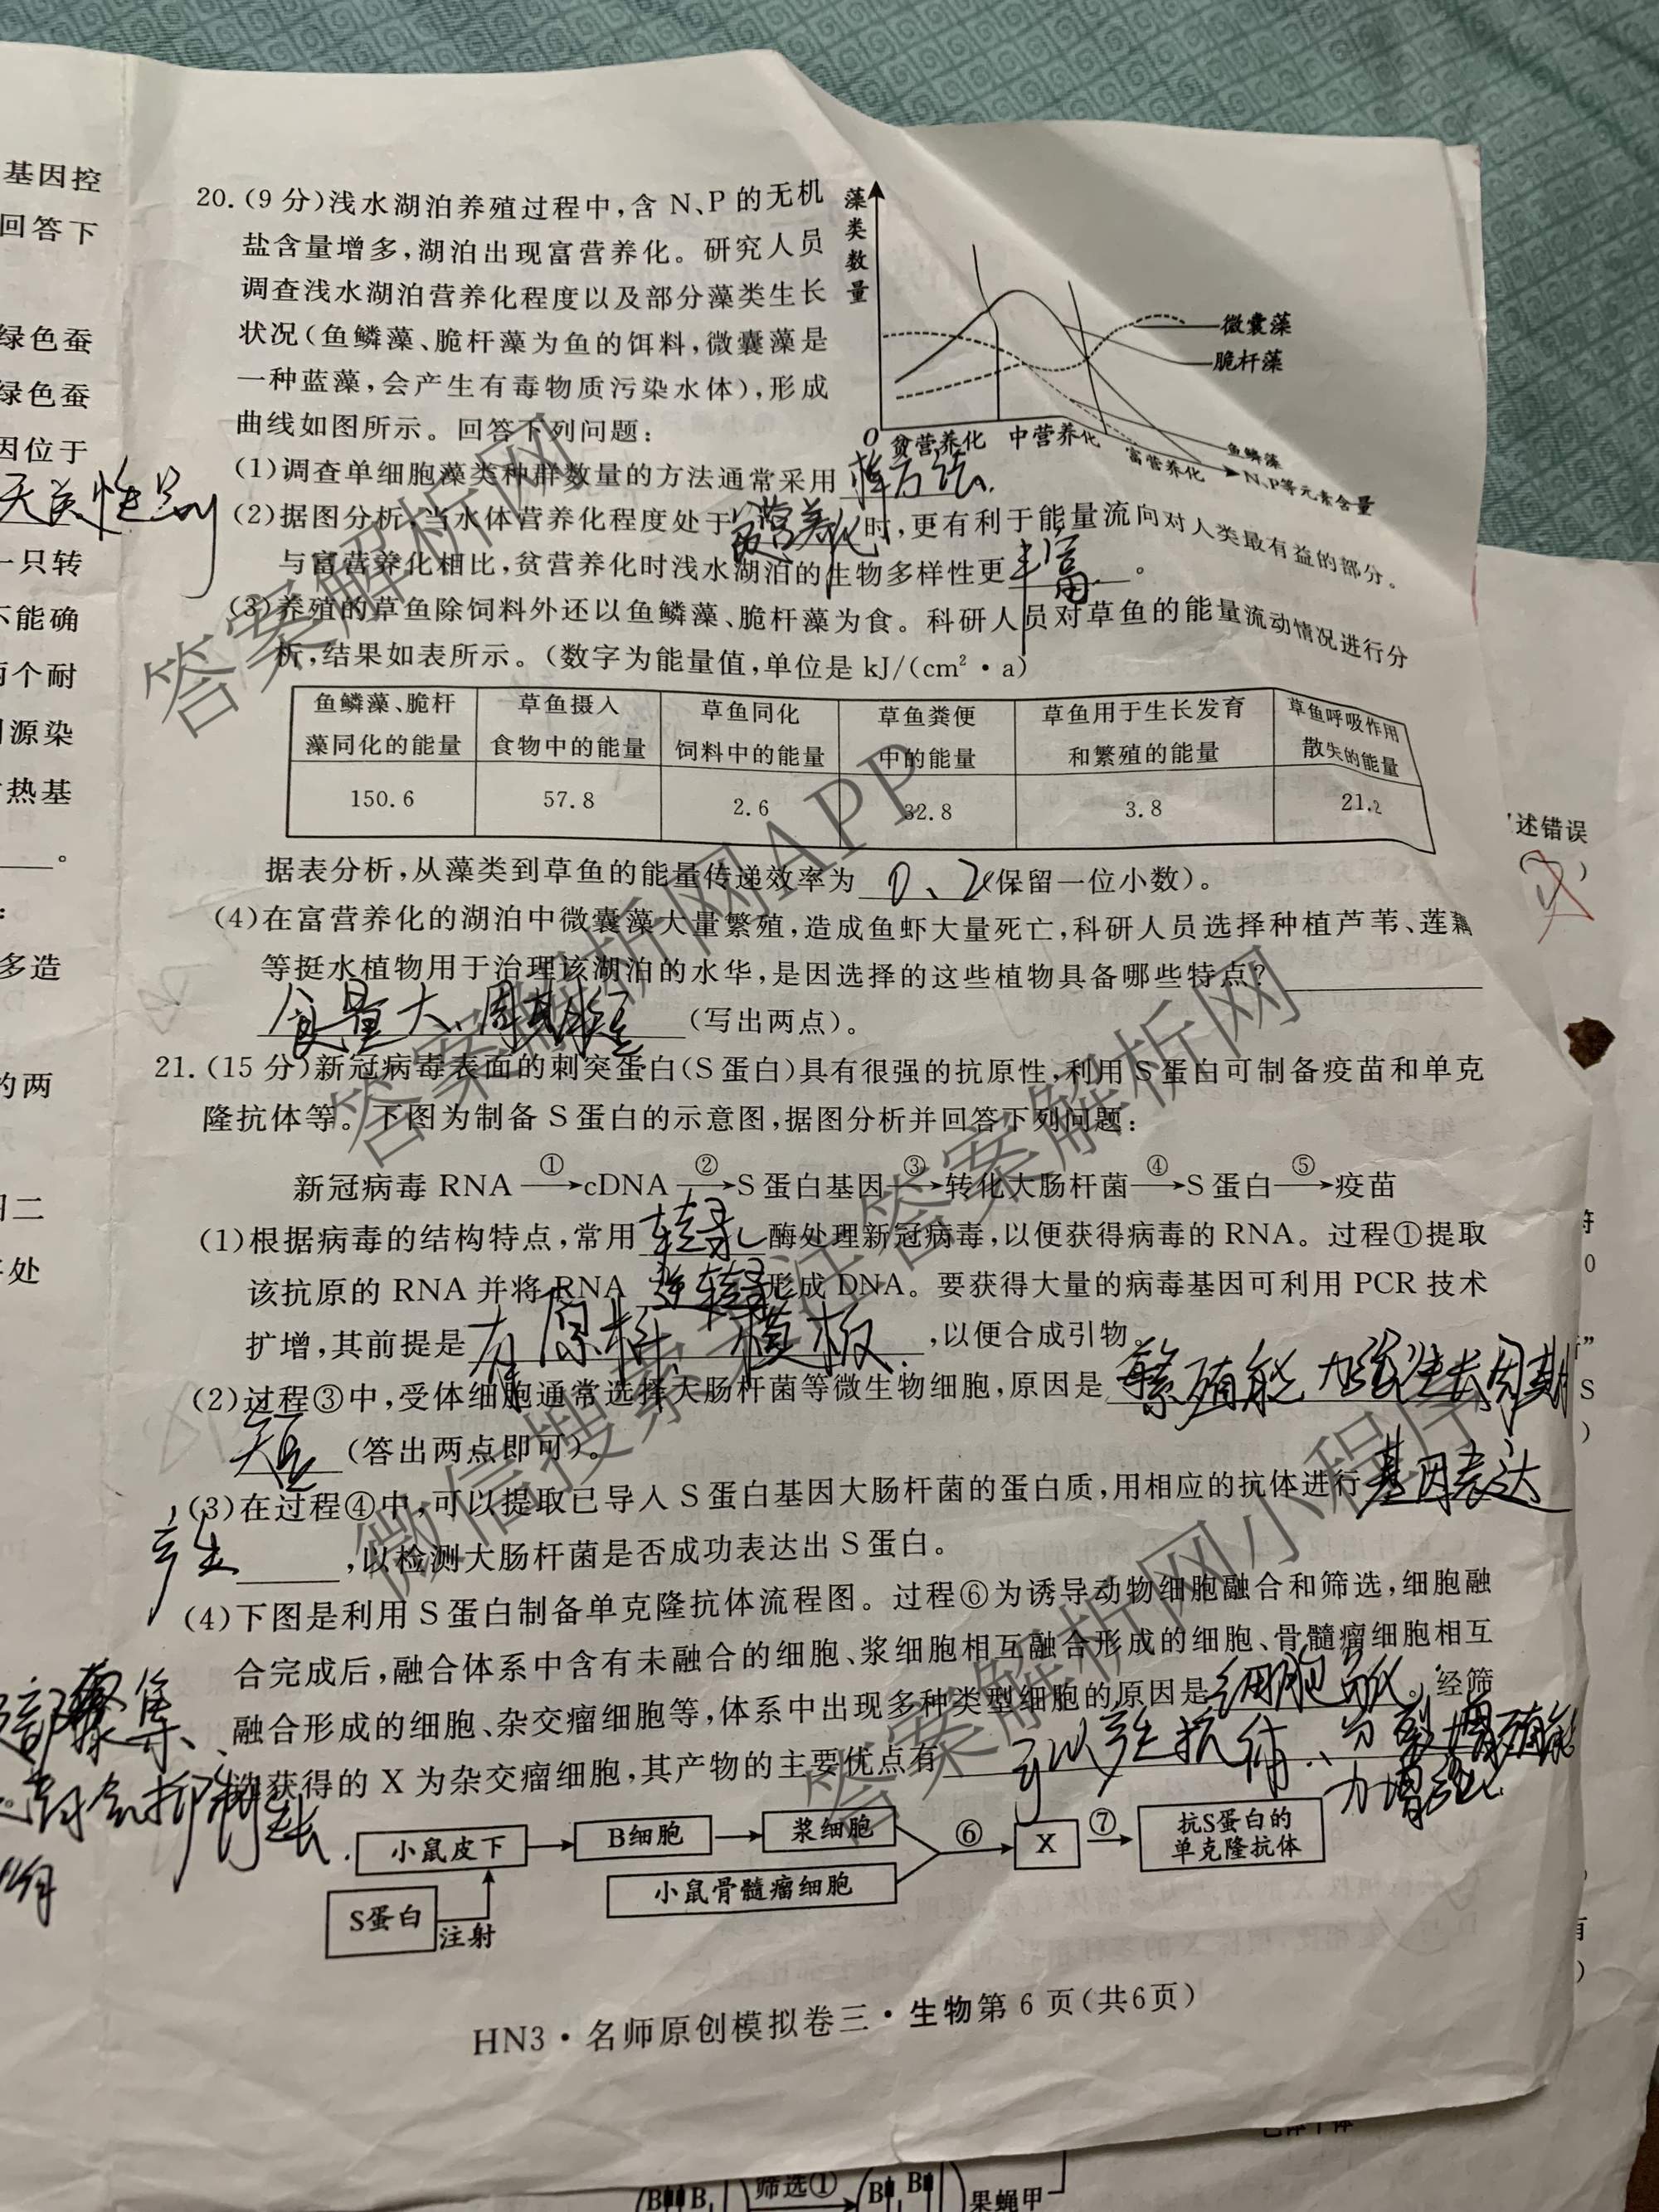 基因控
回答下
绿色蚕
绿色蚕
因位于
无关性别
一只转
不能确
两个耐
源染
热基
。
多造
的两
处
20.(9 分)浅水湖泊养殖过程中,含 N、P 的无机
盐含量增多,湖泊出现富营养化。研究人员
调查浅水湖泊营养化程度以及部分藻类生长
状况(鱼鳞藻、脆杆藻为鱼的饵料,微囊藻是
一种蓝藻,会产生有毒物质污染水体),形成
曲线如图所示。回答下列问题:
藻类数量
微囊藻
脆杆藻
鱼鳞藻
O 贫营养化 中营养化 富营养化 N、P等元素含量
(1)调查单细胞藻类种群数量的方法通常采用
(2)据图分析,当水体营养化程度处于贫营养化时,更有利于能量流向对人类最有益的部分。
与富营养化相比,贫营养化时浅水湖泊的生物多样性更丰富。
(3)养殖的草鱼除饲料外还以鱼鳞藻、脆杆藻为食。科研人员对草鱼的能量流动情况进行分
析,结果如表所示。(数字为能量值,单位是 kJ/(cm²·a)
鱼鳞藻、脆杆藻同化的能量 草鱼摄入食物中的能量 草鱼同化饲料中的能量 草鱼粪便中的能量 草鱼用于生长发育和繁殖的能量 草鱼呼吸作用散失的能量
150.6 57.8 2.6 32.8 3.8 21.2
据表分析,从藻类到草鱼的能量传递效率为 0、2(保留一位小数)。
(4)在富营养化的湖泊中微囊藻大量繁殖,造成鱼虾大量死亡,科研人员选择种植芦苇、莲藕
等挺水植物用于治理该湖泊的水华,是因选择的这些植物具备哪些特点?
食量大、周期短(写出两点)。
21.(15 分)新冠病毒表面的刺突蛋白(S 蛋白)具有很强的抗原性,利用 S 蛋白可制备疫苗和单克
隆抗体等。下图为制备 S 蛋白的示意图,据图分析并回答下列问题:
新冠病毒 RNA ①→ cDNA ②→ S 蛋白基因 ③→ 转化大肠杆菌 ④→ S 蛋白 ⑤→ 疫苗
(1)根据病毒的结构特点,常用转录酶处理新冠病毒,以便获得病毒的 RNA。过程①提取
该抗原的 RNA 并将 RNA 逆转录形成 DNA。要获得大量的病毒基因可利用 PCR 技术
扩增,其前提是有原料、模板,以便合成引物。
(2)过程③中,受体细胞通常选择大肠杆菌等微生物细胞,原因是繁殖能力强生长周期
短(答出两点即可)。
(3)在过程④中,可以提取已导入 S 蛋白基因大肠杆菌的蛋白质,用相应的抗体进行基因表达
产生,以检测大肠杆菌是否成功表达出 S 蛋白。
(4)下图是利用 S 蛋白制备单克隆抗体流程图。过程⑥为诱导动物细胞融合和筛选,细胞融
合完成后,融合体系中含有未融合的细胞、浆细胞相互融合形成的细胞、骨髓瘤细胞相互
融合形成的细胞、杂交瘤细胞等,体系中出现多种类型细胞的原因是细胞。经筛
选获得的 X 为杂交瘤细胞,其产物的主要优点有可以产生抗体、分裂增殖能
力增强
小鼠皮下 B细胞 浆细胞 ⑥ X ⑦ 抗S蛋白的单克隆抗体
小鼠骨髓瘤细胞
S蛋白 注射
HN3·名师原创模拟卷三·生物第 6 页(共6页)
述错误
筛选①
果蝇甲
答案解析网
答案解析网APP
微信搜索关注答案解析网
答案解析网小程序